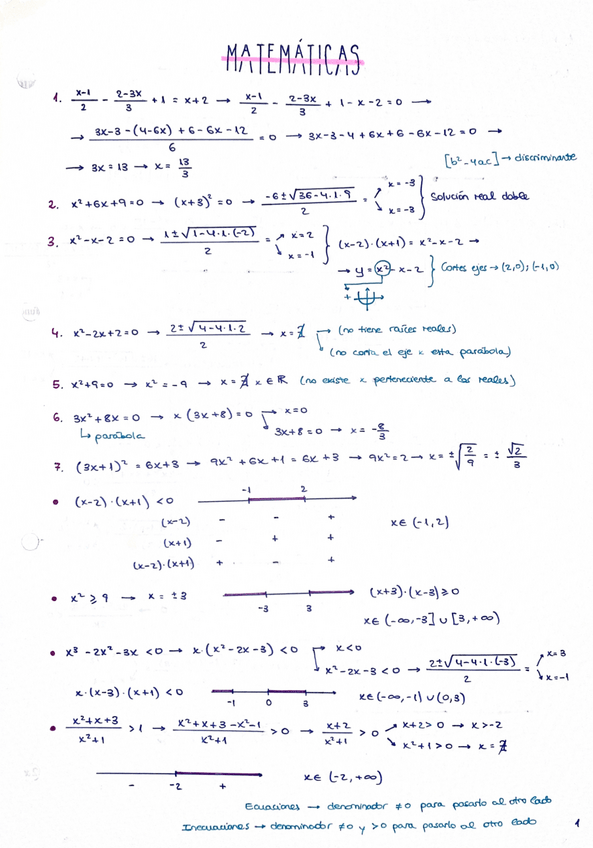 MATEMÁTICAS
1. x-1/2 - 2-3x/3 + 1 = x+2 → x-1/2 - 2-3x/3 + 1 - x - 2 = 0 →
→ 3x-3-(4-6x)+6-6x-12/6 = 0 → 3x-3-4+6x+6-6x-12=0 →
→ 3x = 13 → x = 13/3
[b²-4ac] → discriminante
2. x²+6x+9=0 → (x+3)²=0 → -6±√36-4·1·9/2 = x=-3 x=-3 } Solución real doble
3. x²-x-2=0 → 1±√1-4·1·(-2)/2 = x=2 x=-1 } (x-2)·(x+1) = x²-x-2 →
→ y = x²-x-2 } Cortes ejes → (2,0); (-1,0)
+
4. x²-2x+2=0 → 2±√4-4·1·2/2 → x=∄ → (no tiene raíces reales)
(no corta el eje x esta parábola)
5. x²+9=0 → x²=-9 → x=∄ x∈ℝ (no existe x perteneciente a los reales)
6. 3x²+8x=0 → x(3x+8)=0 → x=0
↳ parábola 3x+8=0 → x=-8/3
7. (3x+1)²=6x+3 → 9x²+6x+1=6x+3 → 9x²=2 → x=±√2/9 = ±√2/3
• (x-2)·(x+1)<0 -1 2
(x-2) - - +
(x+1) - + + x∈(-1,2)
(x-2)·(x+1) + - +
• x²≥9 → x=±3 -3 3 (x+3)·(x-3)≥0
x∈(-∞,-3]∪[3,+∞)
• x³-2x²-3x<0 → x·(x²-2x-3)<0 → x<0
x²-2x-3<0 → 2±√4-4·1·(-3)/2 = x=3 x=-1
x·(x-3)·(x+1)<0 -1 0 3 x∈(-∞,-1)∪(0,3)
• x²+x+3/x²+1 > 1 → x²+x+3-x²-1/x²+1 > 0 → x+2/x²+1 > 0 → x+2>0 → x>-2
x²+1>0 → x=∄
- -2 + x∈(-2,+∞)
Ecuaciones → denominador ≠0 para pasarlo al otro lado
Inecuaciones → denominador ≠0 y >0 para pasarlo al otro lado
1